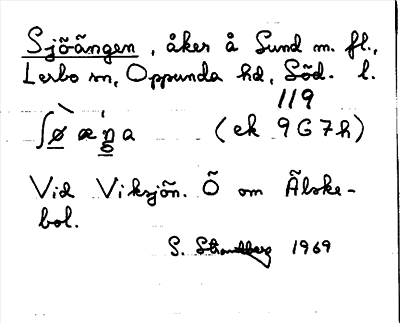 Sjöängen, åker å Sund m. fl.,
Lerbo sn, Oppunda hd, Söd. l.
119
ʃø̀ æ´ŋa (ek 9G7h)
Vid Viksjön. Ö om Älske-
bol.
S. Strandberg 1969